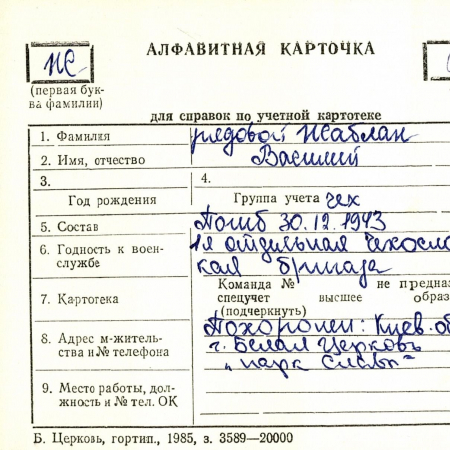 Ж
АЛФАВИТНАЯ КАРТОЧКА
(первая бук-
ва фамилии)
для справок по учетной картотеке
1. Фамилия рядовой Жаблан
2. Имя, отчество Василий
3. 4.
Год рождения Группа учета чех
5. Состав Погиб 30.12.1943
6. Годность к воен- 1я отдельная Чехосло
службе кая бригада
7. Картотека Команда № не предназ
спецучет высшее образ
(подчеркнуть)
8. Адрес м-житель- Похоронен: Киев. об
ства и № телефона г. Белая Церковь
„парк Славы"
9. Место работы, дол-
жность и № тел. ОК
Б. Церковь, гортип., 1985, з. 3589—20000